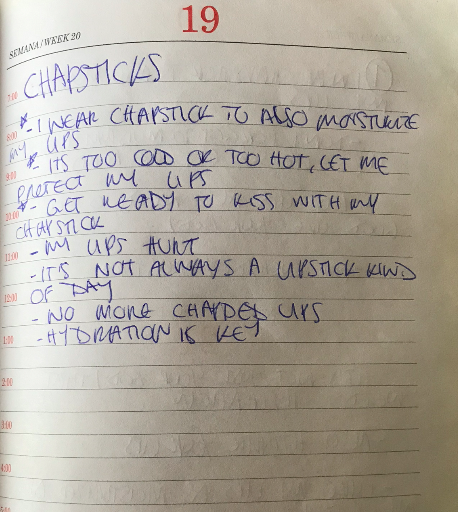 19
SEMANA/WEEK 20
7:00 CHAPSTICKS
* - I WEAR CHAPSTICK TO ALSO MOISTURIZE
8:00
MY LIPS
* - ITS TOO COLD OR TOO HOT, LET ME
9:00
PROTECT MY LIPS
* - GET READY TO KISS WITH MY
10:00
CHAPSTICK
11:00 - MY LIPS HURT
- IT'S NOT ALWAYS A LIPSTICK KIND
12:00 OF DAY
- NO MORE CHAPPED LIPS
1:00 - HYDRATION IS KEY
2:00
3:00
4:00